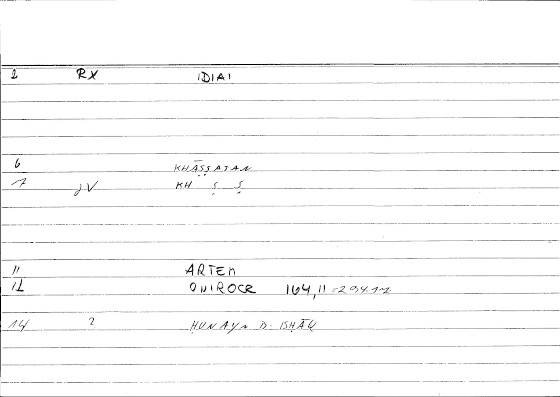 2 RX IDIAI
6 KHĀṢṢATAN
7 JV KH Ṣ Ṣ
11 ARTEM
12 ONIROCR 164,11 = 294.12
14 2 ḤUNAYN B. ISḤĀQ